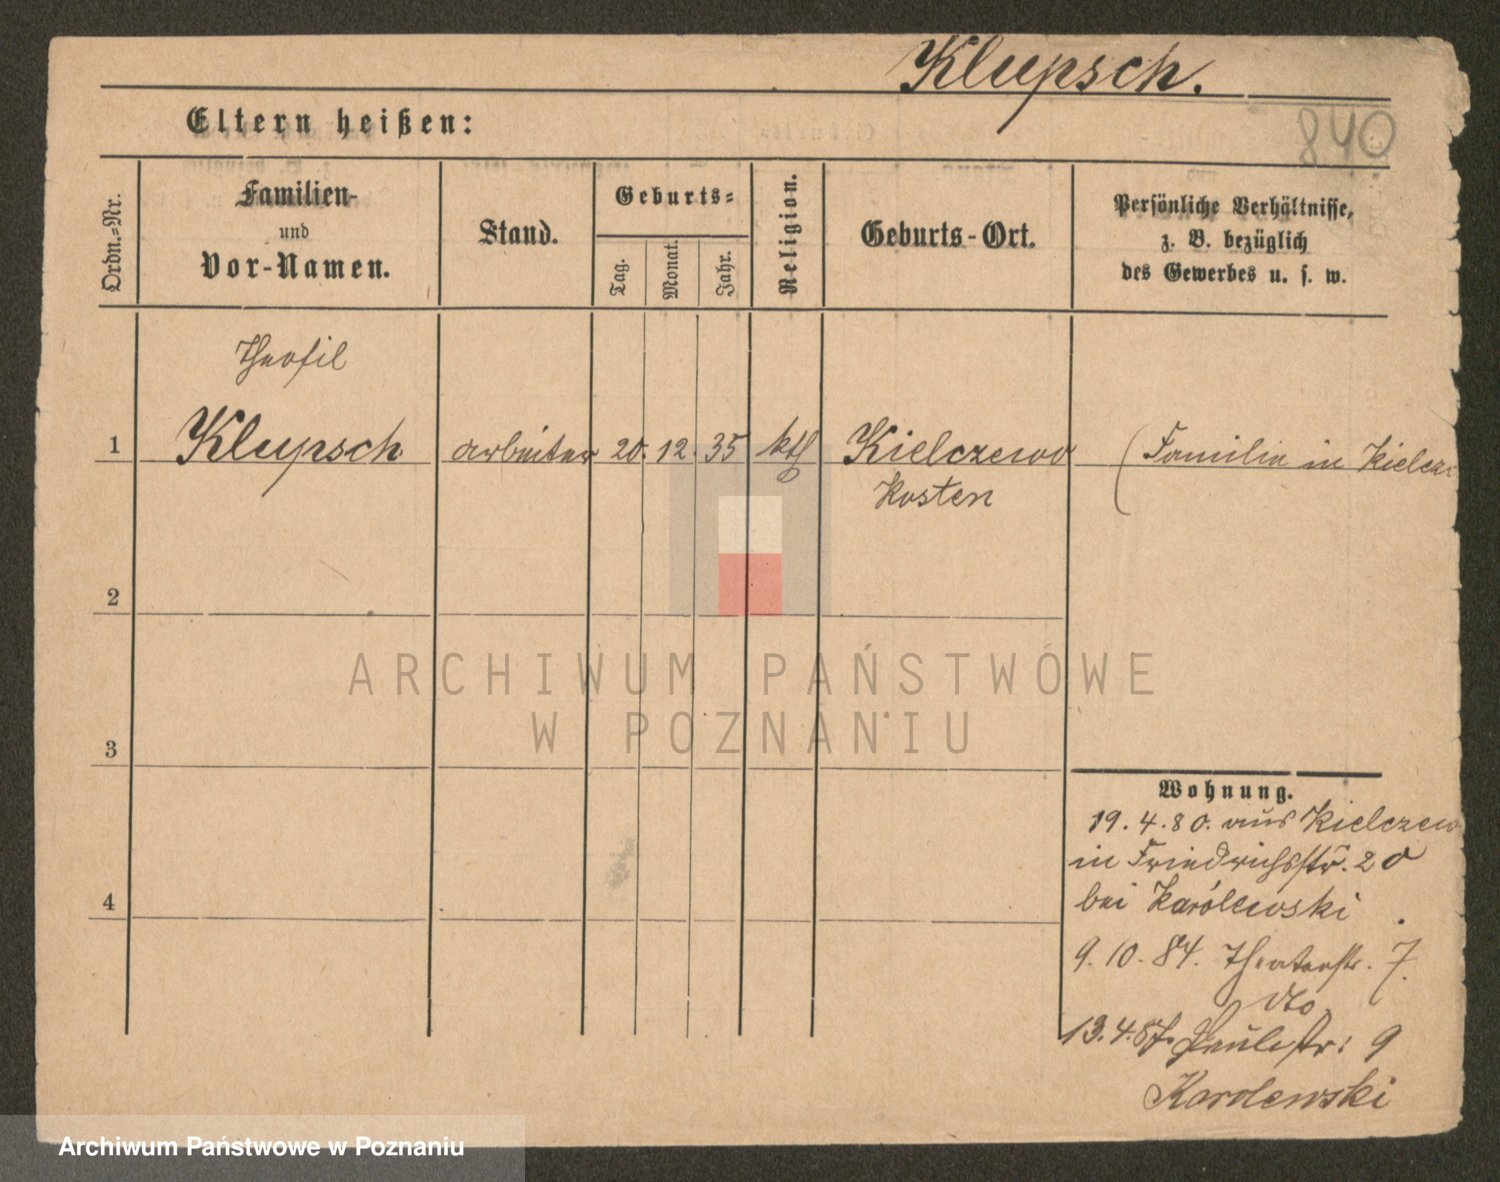 Klupsch.
840
Eltern heißen:
Ordn.-Nr.
Familien-
und
Vor-Namen.
Stand.
Geburts-
Tag.
Monat.
Jahr.
Religion.
Geburts-Ort.
Persönliche Verhältnisse,
z. B. bezüglich
des Gewerbes u. s. w.
Theofil
1 Klupsch arbeiter 20. 12. 35 kth Kielczewo (Familie in Kielcze
Kosten
2
3
4
Wohnung.
19. 4. 80. aus Kielczewo
in Friedrichsstr. 20
bei Karólewski
9. 10. 84. Theaterstr. 7.
dto
13. 4. 87. Paulistr: 9
Karolewski
ARCHIWUM PAŃSTWOWE
W POZNANIU
Archiwum Państwowe w Poznaniu